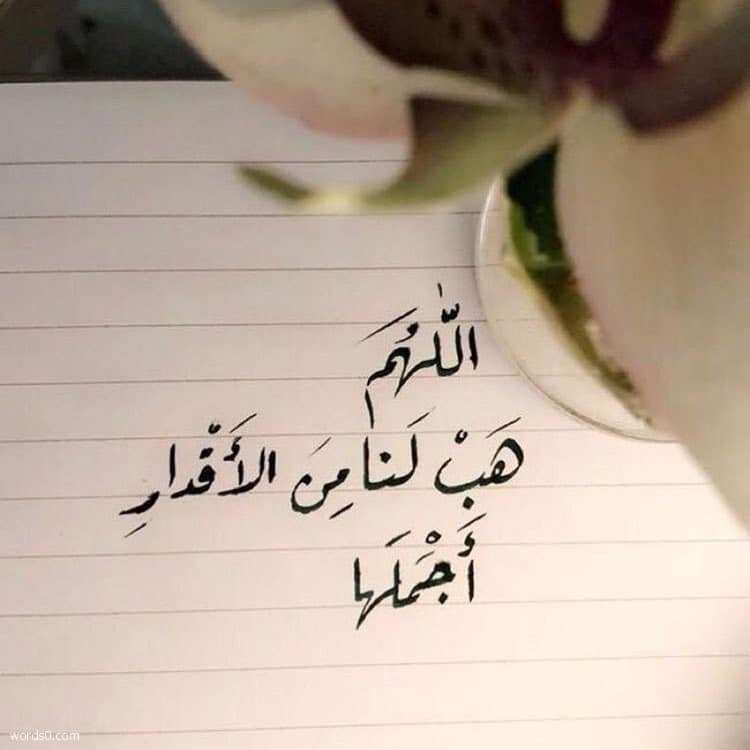 اللّٰهُمَ
هَبْ لَنا مِنَ الأَقْدارِ
أَجْمَلَها
words0.com